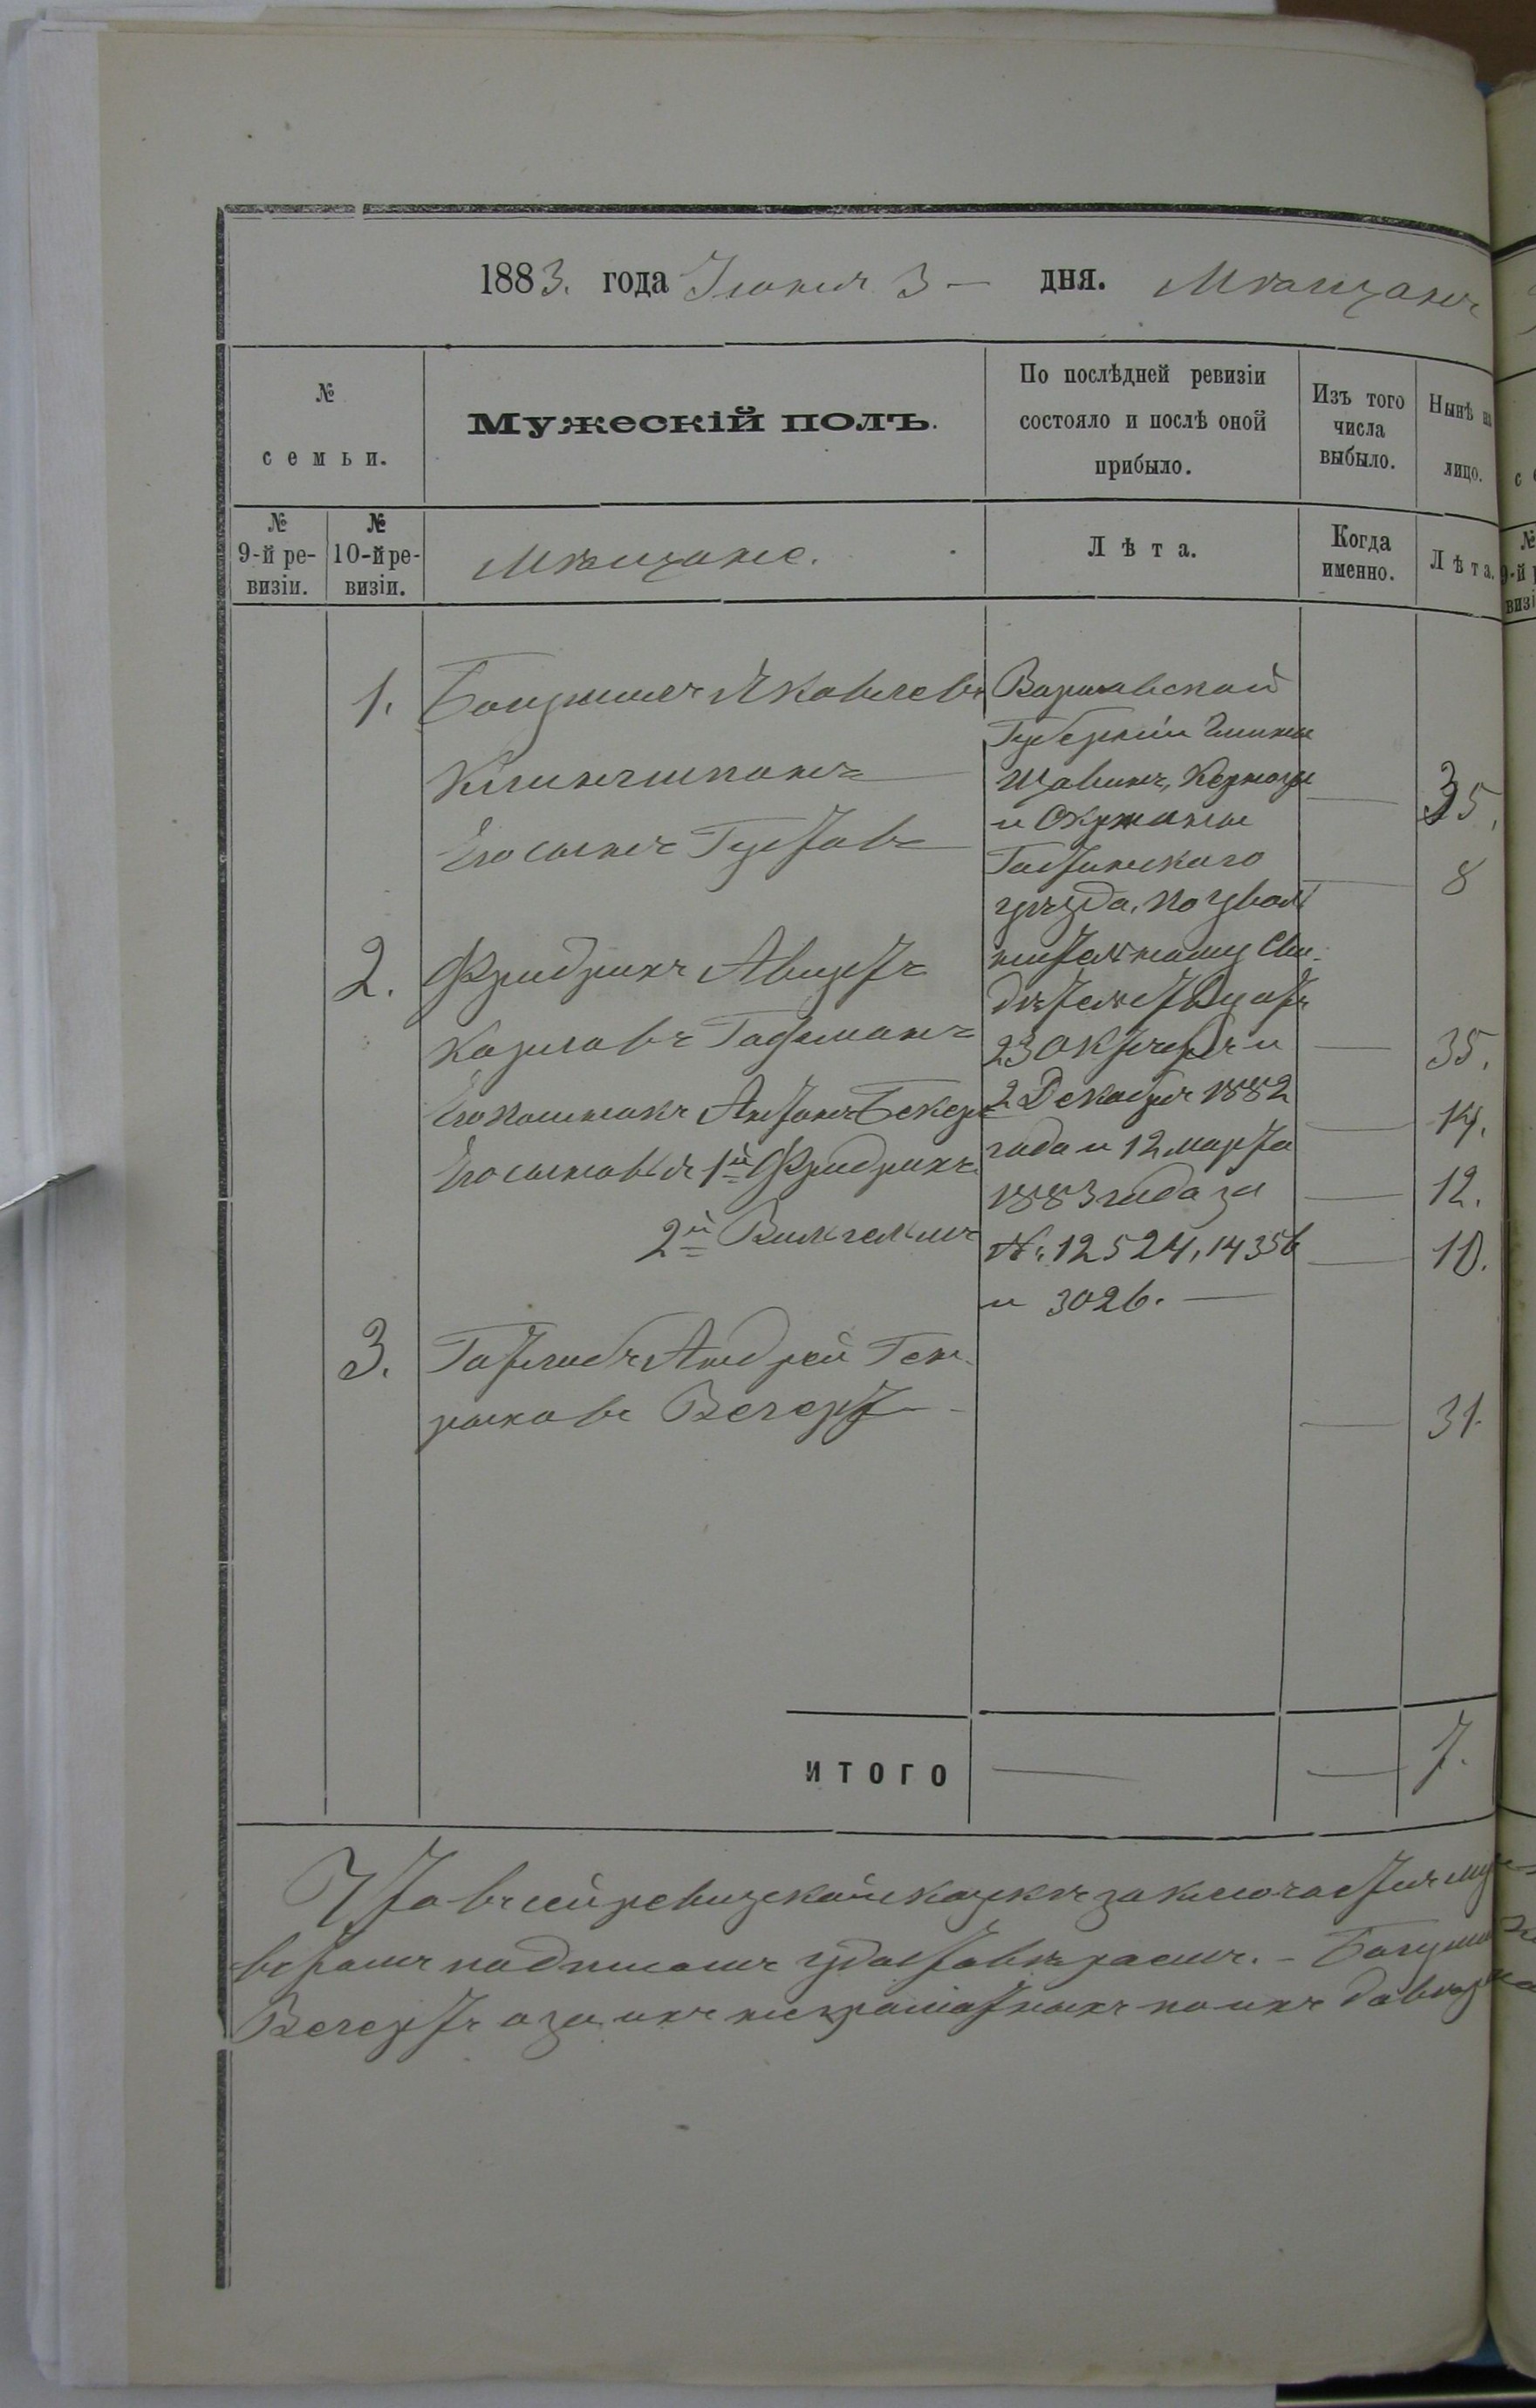 1883. года Іюня 3 — дня. Мѣщанъ
№ семьи.
Мужескій полъ.
По послѣдней ревизіи состояло и послѣ оной прибыло.
Изъ того числа выбыло.
Нынѣ на лицо.
№ 9-й ревизіи.
№ 10-й ревизіи.
Мѣщане.
Лѣта.
Когда именно.
Лѣта.
1. Богумилъ Яковлевъ
Клингшпонъ — 35.
Его сынъ Густавъ — 8
2. Фридрихъ Августъ
Карловъ Гофманъ — 35.
Его пасынокъ Антонъ Бекеръ — 14.
Его сыновья 1й Фридрихъ — 12.
2й Вильгельмъ — 10.
3. Готлибъ Андрей Ген-
риховъ Вегертъ — 31.
Варшавской
Губерніи Гмины
Щавинъ, Кернози
и
Гостынскаго
уѣзда, по уволь
нительному Сви-
дѣтельству отъ
23 Октября и
2 Декабря 1882
года и 12 марта
1883 года за
№ 12524, 14356
и 3026. —
ИТОГО — — 7.
Что въ сей ревизской сказкѣ заключается
въ томъ подписомъ удостовѣряемъ. –
Вегертъ а за ихъ неграмотныхъ по ихъ